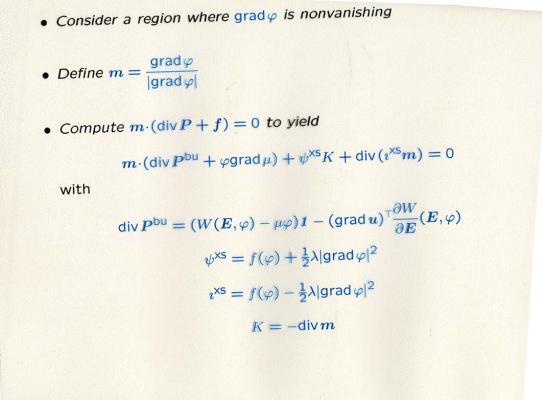 • Consider a region where grad φ is nonvanishing
• Define m = grad φ / |grad φ|
• Compute m·(div P + f) = 0 to yield
m·(div Pᵇᵘ + φgrad μ) + ψˣˢK + div(ιˣˢm) = 0
with
div Pᵇᵘ = (W(E, φ) − μφ)1 − (grad u)ᵀ ∂W/∂E (E, φ)
ψˣˢ = f(φ) + ½λ|grad φ|²
ιˣˢ = f(φ) − ½λ|grad φ|²
K = −div m